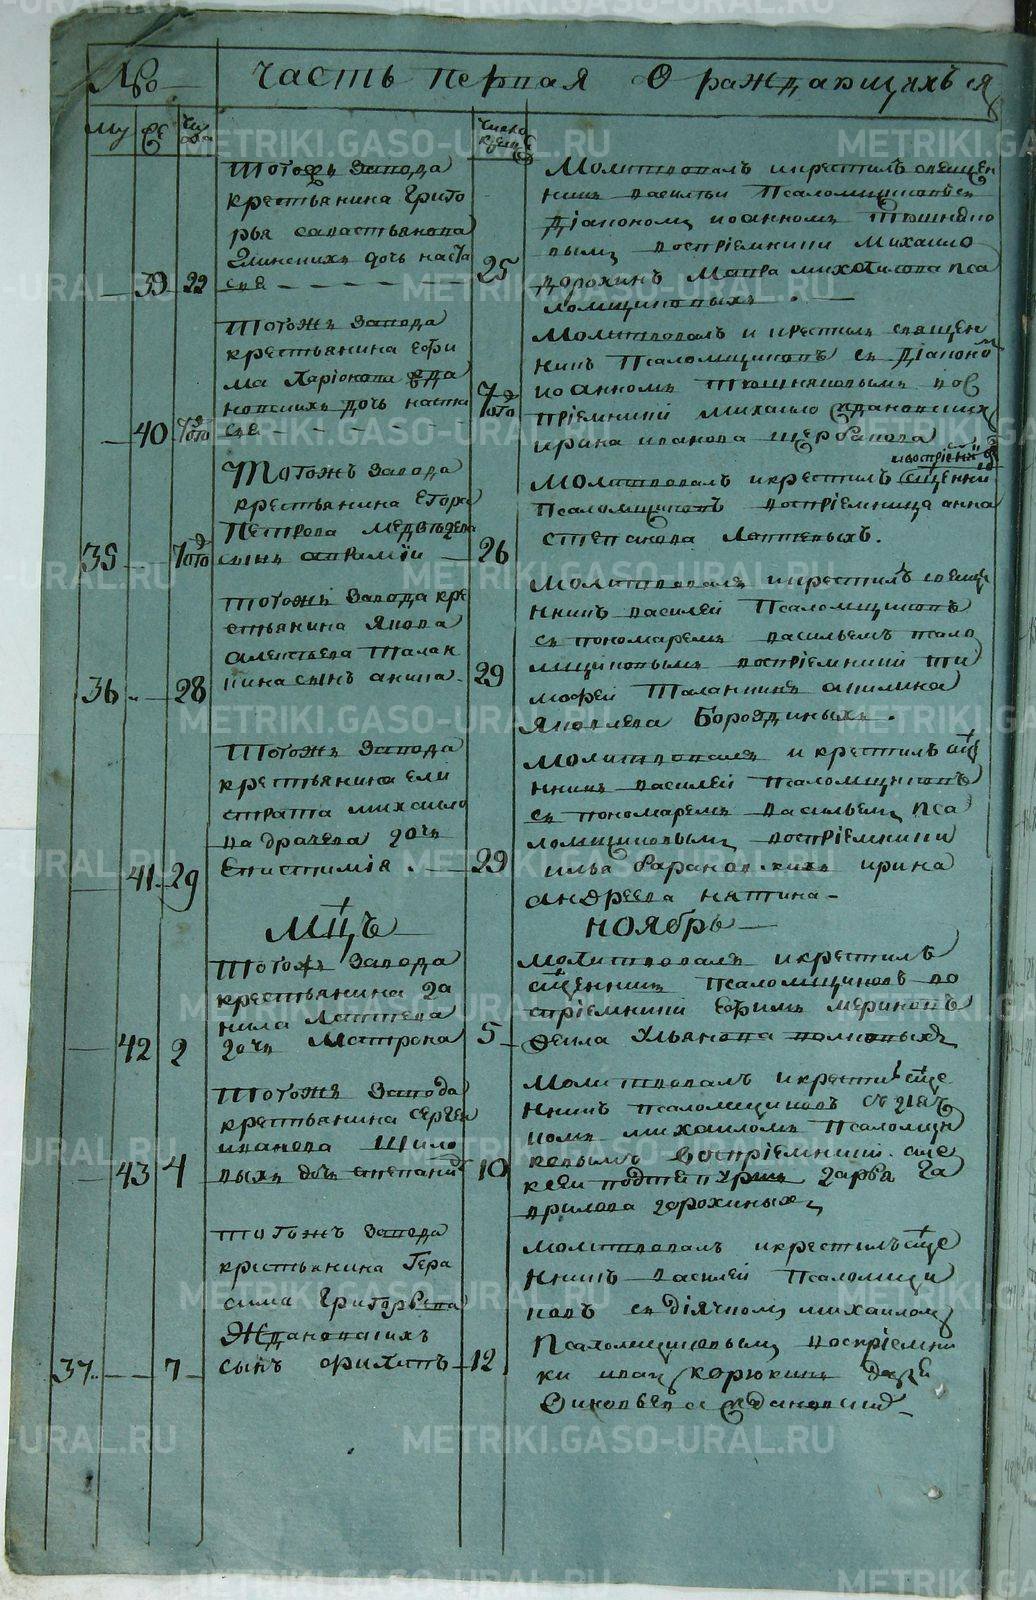 № Часть первая О раждающихъся
му же чи сла число креще
Тогожъ завода
крестьянина Григо
рья Савастьянова
дочь Наста
39 22 сия 25
Молитвовалъ и крестилъ священ
никъ Василеи Псаломщиковъ съ
Діакономъ Иоанномъ
вымъ воспріемники Михаило
Дорохинъ Мавра Михаилова Пса
ломщиковыхъ
Тогожъ завода
крестьянина Ефи
ма Ларіонова Жда
новскихъ дочь Наста
40 Тогожъ сия Тогожъ
Молитвовалъ и крестилъ священ
никъ Псаломщиковъ съ Діакономъ
Иоанномъ вос
пріемники Михаило Ждановскихъ
Ирина Иванова Щербакова
Тогожъ завода
крестьянина Егора
Петрова Медведева
35 Тогожъ сынъ Авраміи 26
Молитвовалъ и крестилъ священникъ
Псаломщиковъ воспріемница Анна
Степанова Лаптевыхъ.
Тогожъ завода кре
стьянина Якова
Алексеева Талан
36 28 кина сынъ Акила 29
Молитвовалъ и крестилъ свяще
нникъ Василеи Псаломщиковъ
съ пономаремъ Васильемъ Псало
мщиковымъ воспріемники Ти
мофеи Таланкинъ Акилина
Яковлева Бороздиныхъ.
Тогожъ завода
крестьянина Ели
страта Михаило
ва Драчева дочь
41 29 Епистимія 29
Молитвовалъ и крестилъ свяще
нникъ Василеи Псаломщиковъ
съ пономаремъ Васильемъ Пса
ломщиковымъ воспріемники
Илья Барановскихъ Ирина
Андреева Никитина
Мцъ Ноябрь
Тогожъ завода
крестьянина Да
нила Лаптева
42 2 дочь Матрона 5
Молитвовалъ и крестилъ
священникъ Псаломщиковъ во
спріемники Ефимъ Мериновъ
Фекла Ульянова Волковыхъ
Тогожъ завода
крестьянина Сергея
Иванова Шило
43 4 выхъ дочь Степанида 10
Молитвовалъ и крестилъ свяще
нникъ Псаломщиковъ съ дьяч
комъ Михаиломъ Псаломщи
ковымъ воспріемники Але
ксеи Дарья Га
врилова Дорохиныхъ
Тогожъ завода
крестьянина Гера
сима Григорьева
Ждановскихъ
37 7 сынъ Филипъ 12
Молитвовалъ и крестилъ свяще
нникъ Василеи Псаломщи
ковъ съ діячкомъ Михаиломъ
Псаломщиковымъ воспріемни
ки Иванъ Корюкинъ
Ждановских